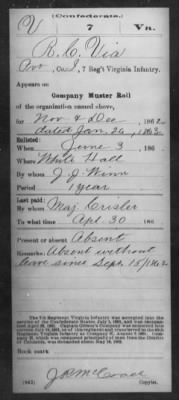 (Confederate.)
V 7 Va.
R. C. Via
Pvt, Co. I, 7 Reg't Virginia Infantry.
Appears on
Company Muster Roll
of the organization named above,
for Nov & Dec, 1862
dated Jan. 26, 1863
Enlisted:
When June 3, 186
Where White Hall
By whom J. J. Winn
Period 1 year
Last paid:
By whom Maj. Crisler
To what time Apl. 30, 186
Present or absent Absent
Remarks: Absent without
leave since Sept. 15/1862
Book mark:
(642) J. R. McCoach
Copyist.